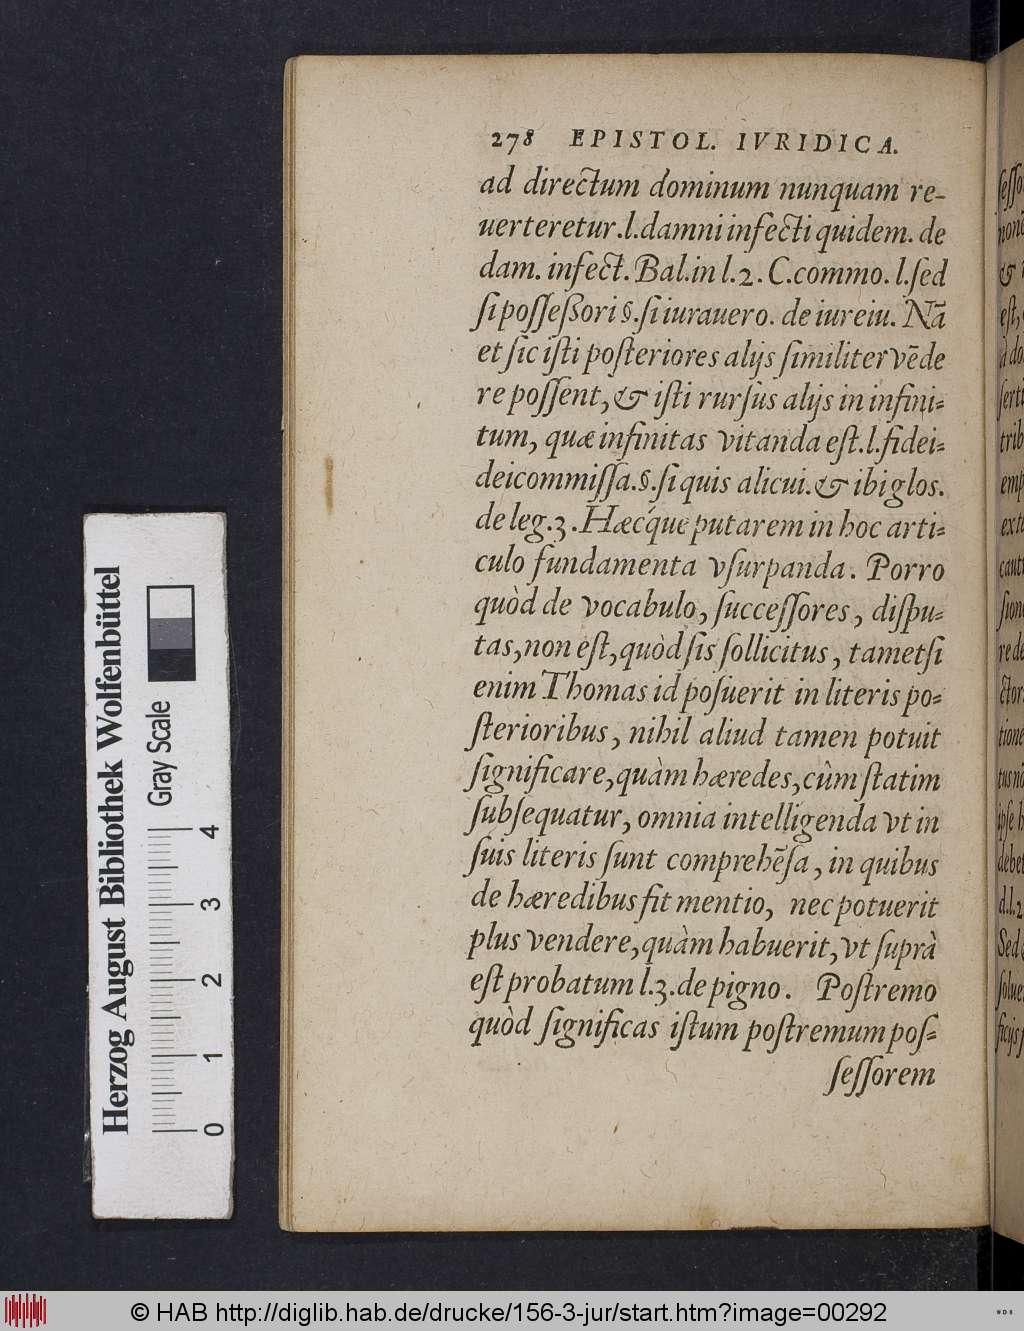 278 EPISTOL. IVRIDICA.
ad directum dominum nunquam re-
uerteretur.l.damni infecti quidem. de
dam. infect. Bal.in l.2. C.commo. l.ſed
ſi poſſeßori §.ſi iurauero. de iureiu. Nā
et ſic iſti poſteriores alijs ſimiliter vēde
re poſſent, & iſti rurſus alijs in infini-
tum, quæ infinitas vitanda eſt.l.fidei-
deicommiſſa.§.ſi quis alicui.& ibi glos.
de leg.3. Hæcque putarem in hoc arti-
culo fundamenta vſurpanda. Porro
quòd de vocabulo, ſucceſſores, diſpu-
tas, non eſt, quòd ſis ſollicitus, tametſi
enim Thomas id poſuerit in literis po-
ſterioribus, nihil aliud tamen potuit
ſignificare, quàm hæredes, cûm ſtatim
ſubſequatur, omnia intelligenda vt in
ſuis literis ſunt comprehēſa, in quibus
de hæredibus fit mentio, nec potuerit
plus vendere, quàm habuerit, vt ſuprà
eſt probatum l.3.de pigno. Poſtremo
quòd ſignificas iſtum poſtremum poſ-
ſeſſorem
Herzog August Bibliothek Wolfenbüttel
Gray Scale
0 1 2 3 4
© HAB http://diglib.hab.de/drucke/156-3-jur/start.htm?image=00292